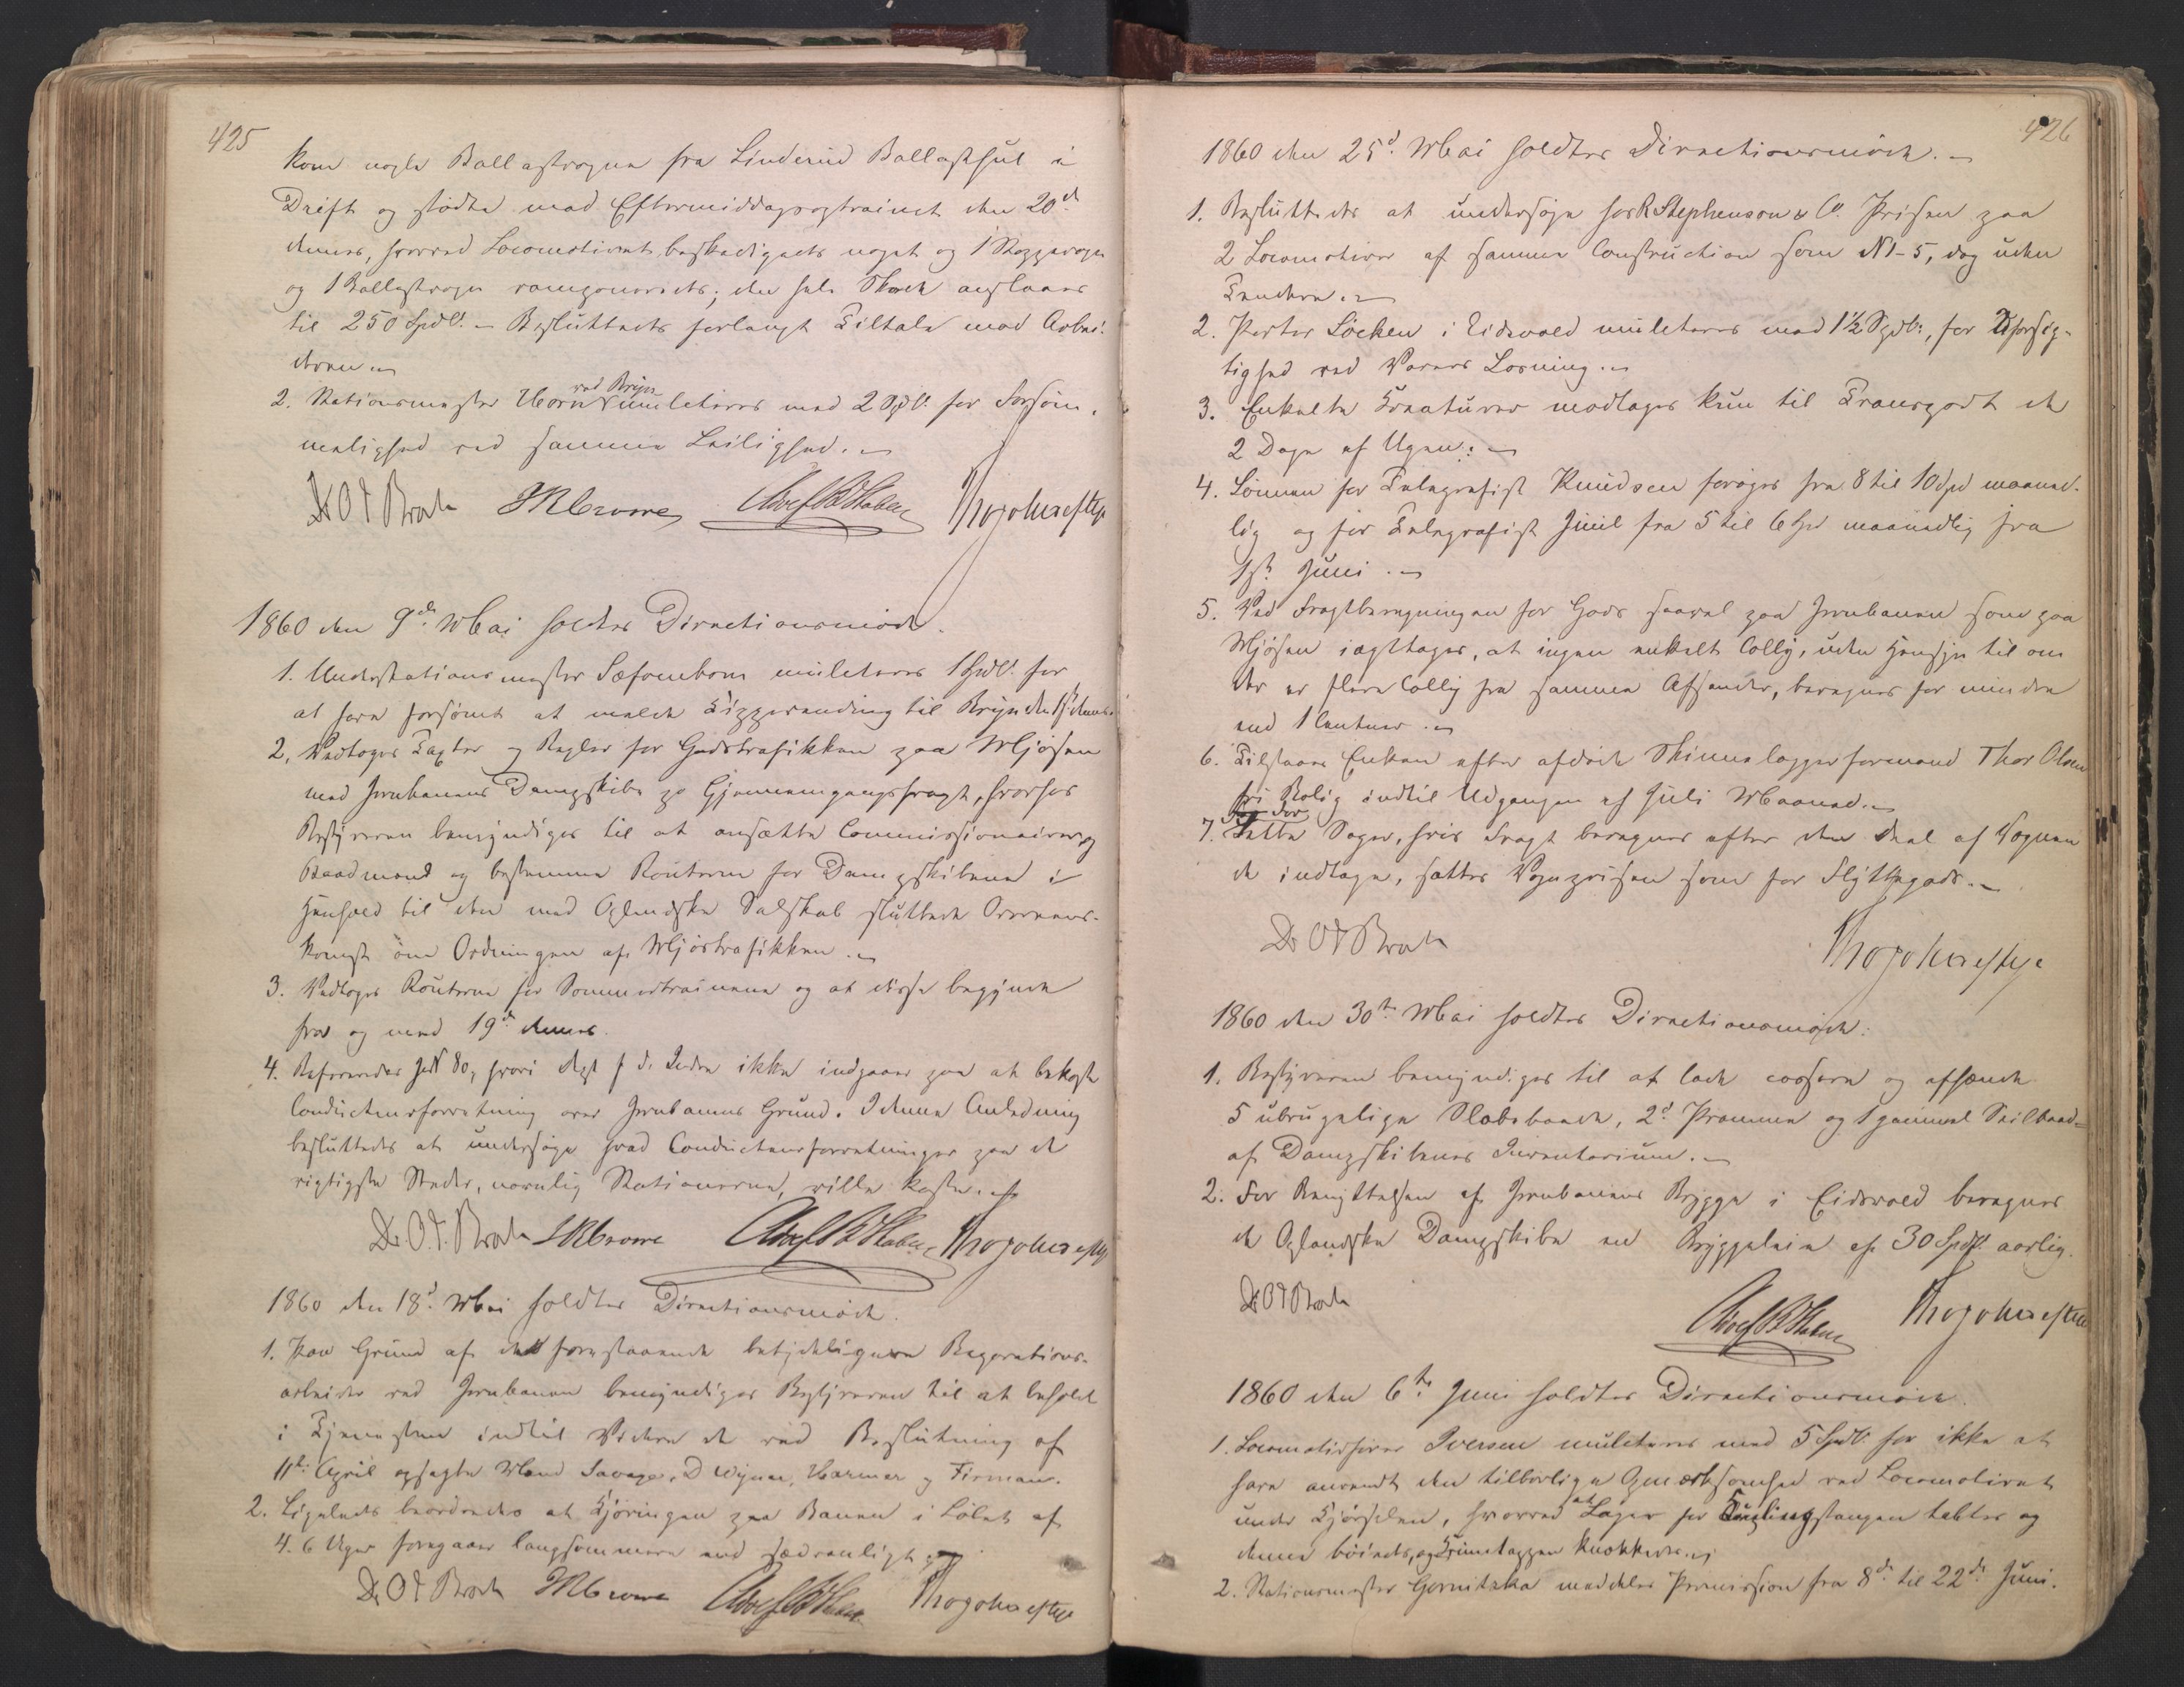 425
kom nogle Ballastvogne fra Linderud Ballasthul i
Drift og stødte mod Eftermiddagsgtrainet den 20d
dennes, hvorved Locomotivet beskadigedes noget og 1 Stoppevogn
og 1 Ballastvogn ramponeredes; den hele Skade anslaaes
til 250 Spdl. – Besluttedes forlangt Tiltale mod Arbei-
derne. –
2. Stationsmester Horn ved Bryn mulcteres med 2 Spdl. for Forsøm-
melighed ved samme Leilighed. –
Dr O J Broch JRCrowe Thv Johs Heftye
1860 den 9de Mai holdtes Directionsmøde.
1. Understationsmester mulcteres 1 Spdl. for
at have forsømt at melde til Bryn den dennes.
2. Vedtoges Taxter og Regler for Godstrafikken paa Mjøsen
med Jernbanens Dampskibe pr Gjennemgangsfragt, hvorhos
Bestyreren bemyndiges til at ansætte Commissionairer og
Baadmænd og bestemme Routerne for Dampskibene i
Henhold til den med Oplandske Selskab sluttede Overeens-
komst om Ordningen af Mjøstrafikken. –
3. Vedtoges Routerne for Sommertrainene og at disse begynde
fra og med 19d dennes.
4. Refereredes J.N 80, hvori Dept f. d. Indre ikke indgaaer paa at bekoste
Conducteurforretning over Jernbanens Grund. I denne Anledning
besluttedes at undersøge hvad Conducteurforretninger paa de
vigtigste Steder, navnlig Stationerne, ville koste. –
Dr. O. J. Broch JRCrowe Thv Johs Heftye
1860 den 18d Mai holdtes Directionsmøde.
1. Paa Grund af de forestaaende betydeligere Reparations-
arbeider ved Jernbanen bemyndiges Bestyreren til at beholde
i Tjenesten indtil Videre de ved Beslutning af
11te April opsagte Mænd Savage, D Wynne, Harmer og Firman.
2. Ligeledes beordredes at Kjøringen paa Banen i Løbet af
4. 6 Uger foregaaer langsommere end sædvanligt. –
Dr O J Broch JRCrowe Thv Johs Heftye
426
1860 den 25d Mai holdtes Directionsmøde. –
1. Besluttedes at undersøge hos R Stephenson & Co. Prisen paa
2 Locomotiver af samme Construction som N 1-5, dog uden
Tendere. –
2. Porter Løcken i Eidsvold mulcteres med 1½ Spdl., for Uforsig-
tighed ved Varers Losning. –
3. Enkelte Kreaturer modtages kun til Transport de
2 Dage af Ugen: –
4. Lønnen for Telegrafist Knudsen forøges fra 8 til 10 Spd maaned-
lig og for Telegrafist Juul fra 5 til 6 Spd maanedlig fra
1st Juni. –
5. Ved Fragtberegningen for Gods saavel paa Jernbanen som paa
Mjøsen iagttages, at ingen enkelt Colly, uden Hensyn til om
der er flere Colly fra samme Afsender, beregnes for mindre
end 1 Centner. –
6. Tilstaaes Enken efter afdøde Skinnelæggerformand Thor Olsen
fri Bolig indtil Udgangen af Juli Maaned. –
7. For Sager, hvis Fragt beregnes efter den Deel af Vognen
de indtage, sættes Vognprisen som for Flyttegods. –
Dr O J Broch Thv Johs Heftye
1860 den 30te Mai holdtes Directionsmøde:
1. Bestyreren bemyndiges til at lade cassere og afhænde
5 ubrugelige Slæbebaade, 2d Pramme og 1 gammel Seilbaad
af Dampskibenes Inventarium. –
2. For Benyttelsen af Jernbanens Brygge i Eidsvold beregnes
de Oplandske Dampskibe en Bryggeleie af 30 Spdl. aarlig.
Dr O J Broch Thv Johs Heftye
1860 den 6te Juni holdtes Directionsmøde.
1. Locomotivfører Iversen mulcteres med 5 Spdl. for ikke at
have anvendt den tilbørlige Opmærksomhed ved Locomotivet
under Kjørselen, hvorved et Lager for Couplingsstangen tabtes og
denne bøiedes, og knækkedes. –
2. Stationsmester Gornitzka meddeles Permission fra 8de til 22de Juni.